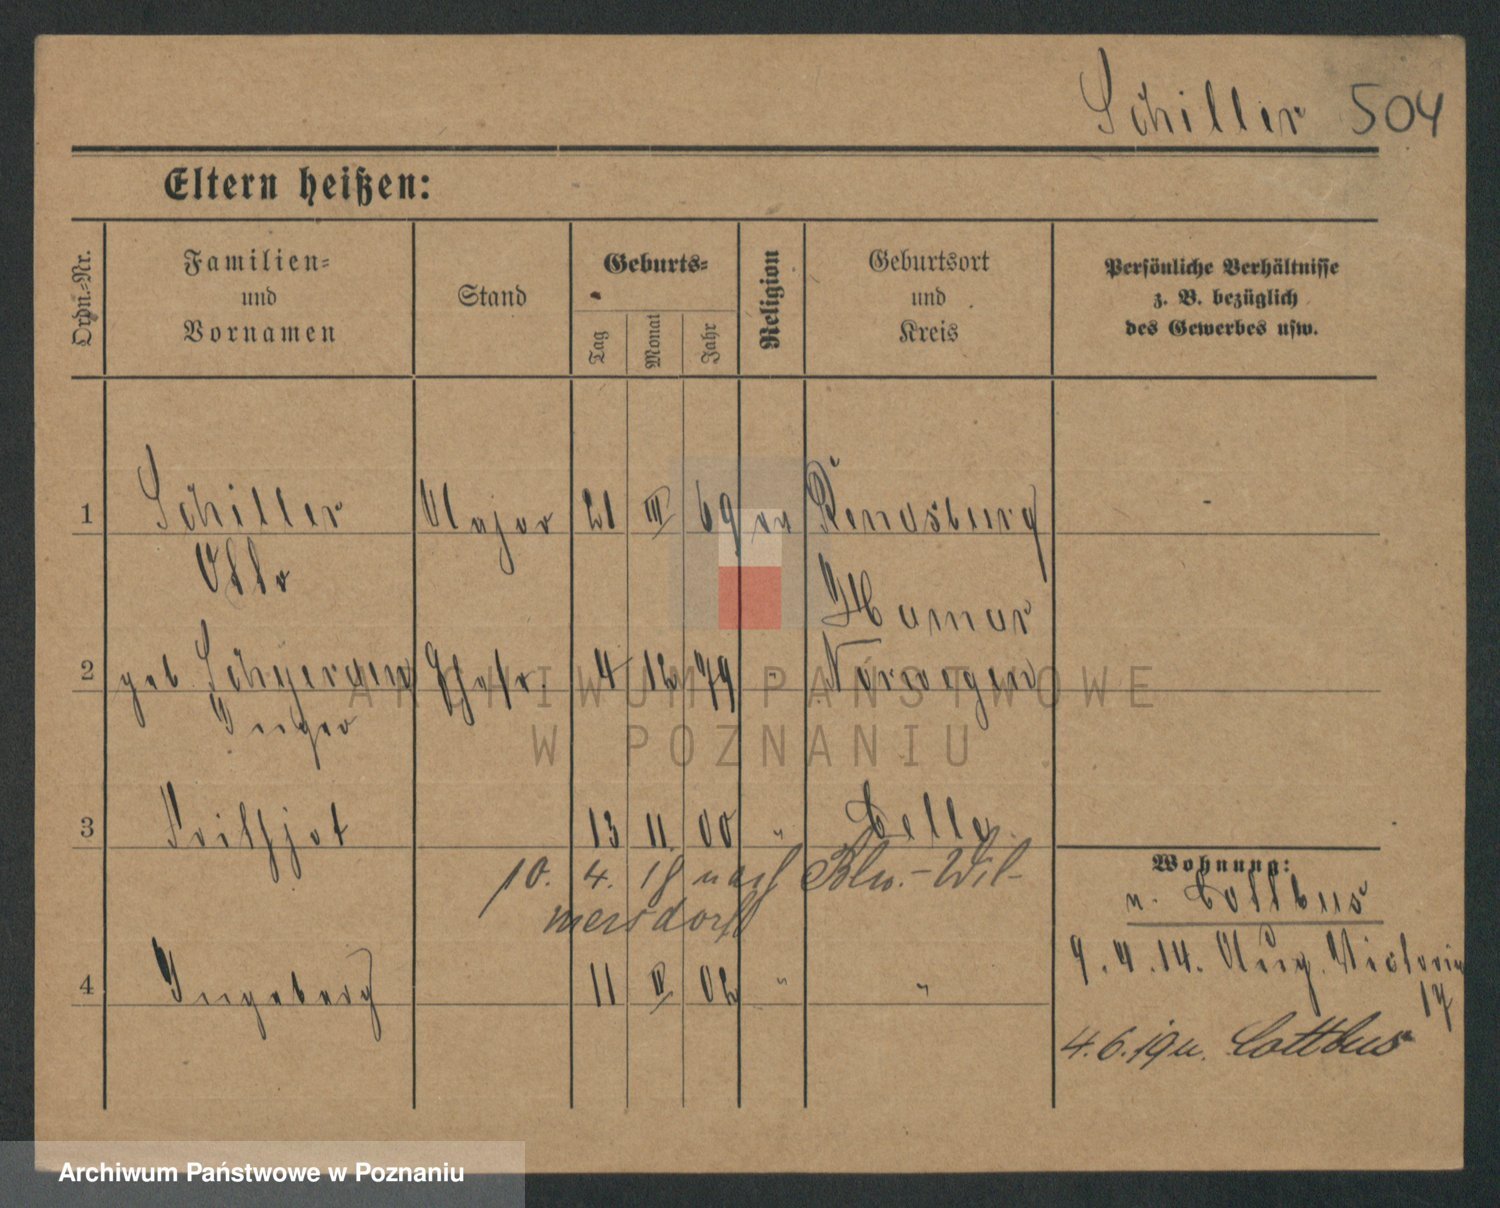 Schiller 504
Eltern heißen:
Ordn.-Nr.
Familien-
und
Vornamen
Stand
Geburts-
Tag
Monat
Jahr
Religion
Geburtsort
und
Kreis
Persönliche Verhältnisse
z. B. bezüglich
des Gewerbes usw.
1 Schiller Major 21 III 69 ev Rendsburg -
Otto
Hamar
2 geb. Ehefr. 4 12 79 - Norwegen
Inger
3 Frithjot 13 11 00 " Celle
Wohnung:
10. 4. 18 nach Bln.-Wil-
mersdorf
n. Cottbus
9.4.14. Aug. Victoria
17
4 Ingeborg 11 II 02 " "
4.6.19 n. Cottbus
ARCHIWUM PAŃSTWOWE
W POZNANIU
Archiwum Państwowe w Poznaniu